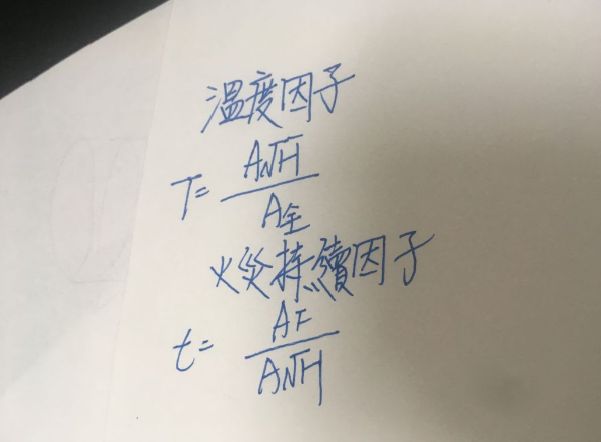 溫度因子
T= A√H / A全
火災持續因子
t= AF / A√H